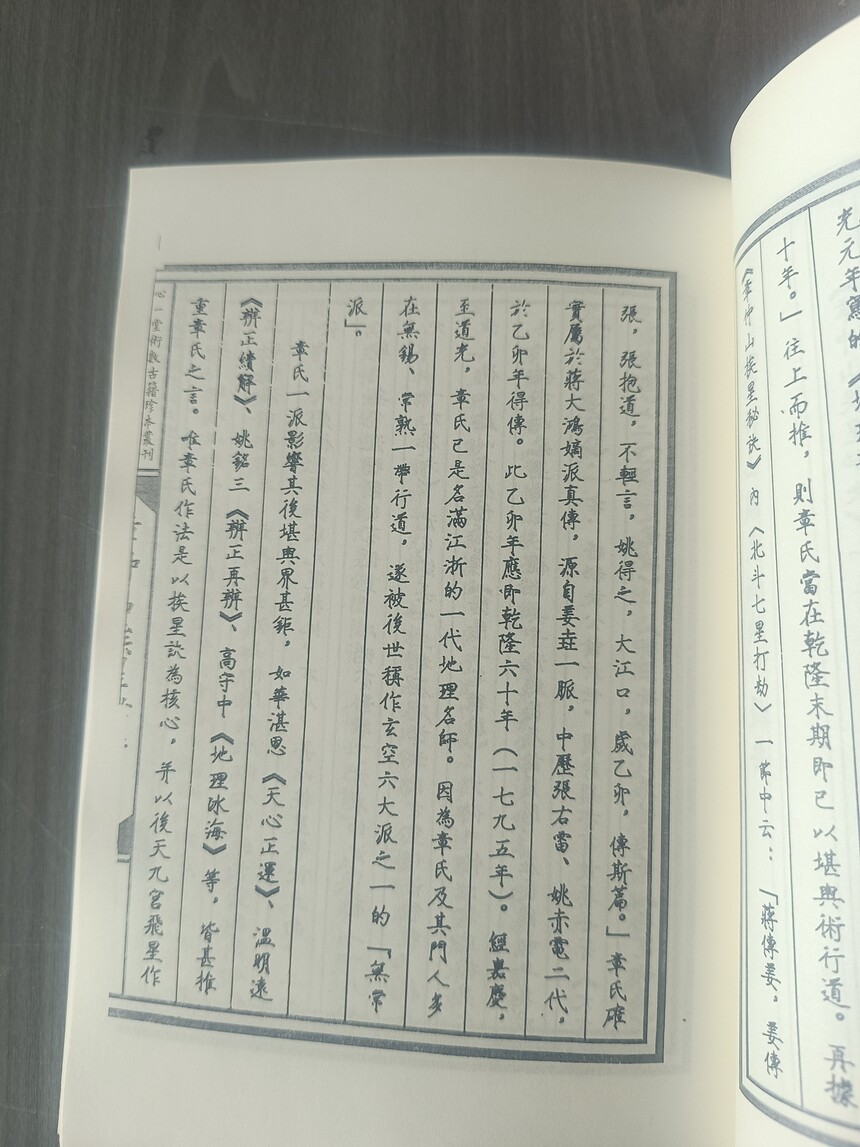 光元年寫的
十年。」往上而推，則章氏當在乾隆末期即已以堪輿術行道。再據
《章仲山挨星秘訣》內《北斗七星打劫》一節中云：「蔣傳姜，姜傳
張，張抱道，不輕言，姚得之，大江口，歲乙卯，傳斯篇。」章氏確
實屬於蔣大鴻嫡派真傳，源自姜垚一脈，中歷張右當、姚赤電二代，
於乙卯年得傳。此乙卯年應即乾隆六十年（一七九五年）。經嘉慶，
至道光，章氏已是名滿江浙的一代地理名師。因為章氏及其門人多
在無錫、常熟一帶行道，遂被後世稱作玄空六大派之一的「無常
派」。
章氏一派影響其後堪輿界甚鉅，如華湛恩《天心正運》、溫明遠
《辨正續解》、姚銘三《辨正再辨》、高守中《地理冰海》等，皆甚推
重章氏之言。唯章氏作法是以挨星訣為核心，并以後天九宮飛星作
心一堂術數古籍珍本叢刊